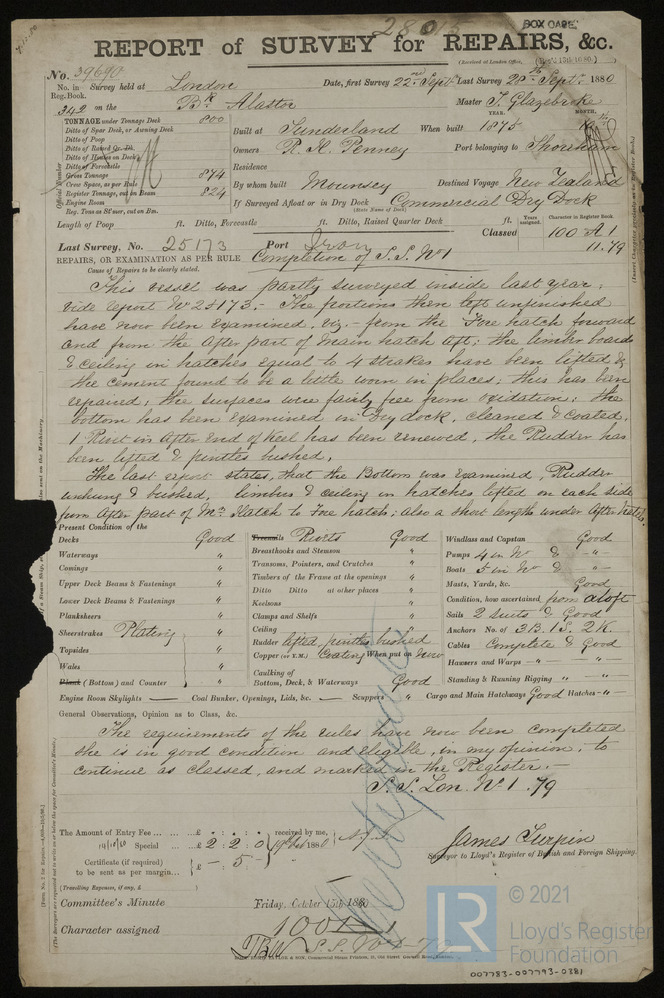 28015
BOX CASE
REPORT of SURVEY for REPAIRS, &c.
(Received at London Office,
No. 39690
No. in Survey held at London Date, first Survey 22nd Sept Last Survey 28th Sept. 1880
Reg. Book.
342 on the Bk Alastor Master J. Glazebrooke
TONNAGE under Tonnage Deck 800
Ditto of Spar Deck, or Awning Deck
Ditto of Poop
Ditto of Raised Qr. Dk.
Ditto of Houses on Deck
Ditto of Forecastle
Gross Tonnage 874
Crew Space, as per Rule
Register Tonnage, cut on Beam 824
Engine Room
Reg. Tons as St'mer, cut on Bm.
YEAR. MONTH.
Built at Sunderland When built 1875
Owners R. H. Penney Port belonging to Shoreham
Residence
By whom built Mounsey Destined Voyage New Zealand
If Surveyed Afloat or in Dry Dock Commercial Dry Dock
(State Name of Dock)
Length of Poop ft. Ditto, Forecastle ft. Ditto, Raised Quarter Deck ft.
Years assigned. Character in Register Book.
Classed 100 A 1
11.79
Last Survey, No. 25173 Port Iron
REPAIRS, OR EXAMINATION AS PER RULE Completion of S.S. No 1
Cause of Repairs to be clearly stated.
This vessel was partly surveyed inside last year,
vide report No 25173.- The portions then left unfinished
have now been examined, viz.- from the Fore hatch forward
and from the after part of main hatch aft; the limber boards
& ceiling in hatches equal to 4 strakes have been lifted &
the cement found to be a little worn in places; this has been
repaired; the surfaces were fairly free from oxidation; the
bottom has been examined in Dry dock, cleaned & Coated.
1 Rivet in after end of keel has been renewed, the Rudder has
been lifted & pintles bushed.
The last report states, that the Bottom was examined, Rudder
unhung & bushed, limbers & ceiling in hatches lifted on each side
from after part of Mn Hatch to Fore hatch; also a short length under After hatch.
Present Condition of the
Decks Good
Waterways "
Comings "
Upper Deck Beams & Fastenings "
Lower Deck Beams & Fastenings "
Planksheers "
Sheerstrakes Plating "
Topsides "
Wales "
Plank (Bottom) and Counter "
Treenails Rivets Good
Breasthooks and Stemson "
Transoms, Pointers, and Crutches "
Timbers of the Frame at the openings "
Ditto Ditto at other places "
Keelsons "
Clamps and Shelfs "
Ceiling "
Rudder lifted, pintles bushed
Copper (or Y.M.) Coating When put on Now
Caulking of
Bottom, Deck, & Waterways Good
Windlass and Capstan Good
Pumps 4 in No & - " -
Boats 5 in No & - " -
Masts, Yards, &c. Good
Condition, how ascertained from aloft
Sails 2 Suits & Good
Anchors No. of 3 B. 1 S. 2 K.
Cables Complete & Good
Hawsers and Warps - " - - " -
Standing & Running Rigging " - " -
Engine Room Skylights — Coal Bunker, Openings, Lids, &c. — Scuppers " Cargo and Main Hatchways Good Hatches - " -
General Observations, Opinion as to Class, &c.
The requirements of the rules have now been completed
she is in good condition and eligible, in my opinion, to
continue as classed, and marked in the Register.-
S.S. Lon. No 1. 79
The Amount of Entry Fee ... ... £ : : received by me,
Special ... £ 2 : 2 : 0 1880
Certificate (if required) £ - 5 -
to be sent as per margin...
(Travelling Expenses, if any, £
James Turpin
Surveyor to Lloyd's Register of British and Foreign Shipping.
Committee's Minute Friday, October 15th 1880
Character assigned 100A1
S.S. No 1 - 79
© 2021
LR
Lloyd's Register
Foundation
007783-007793-0381